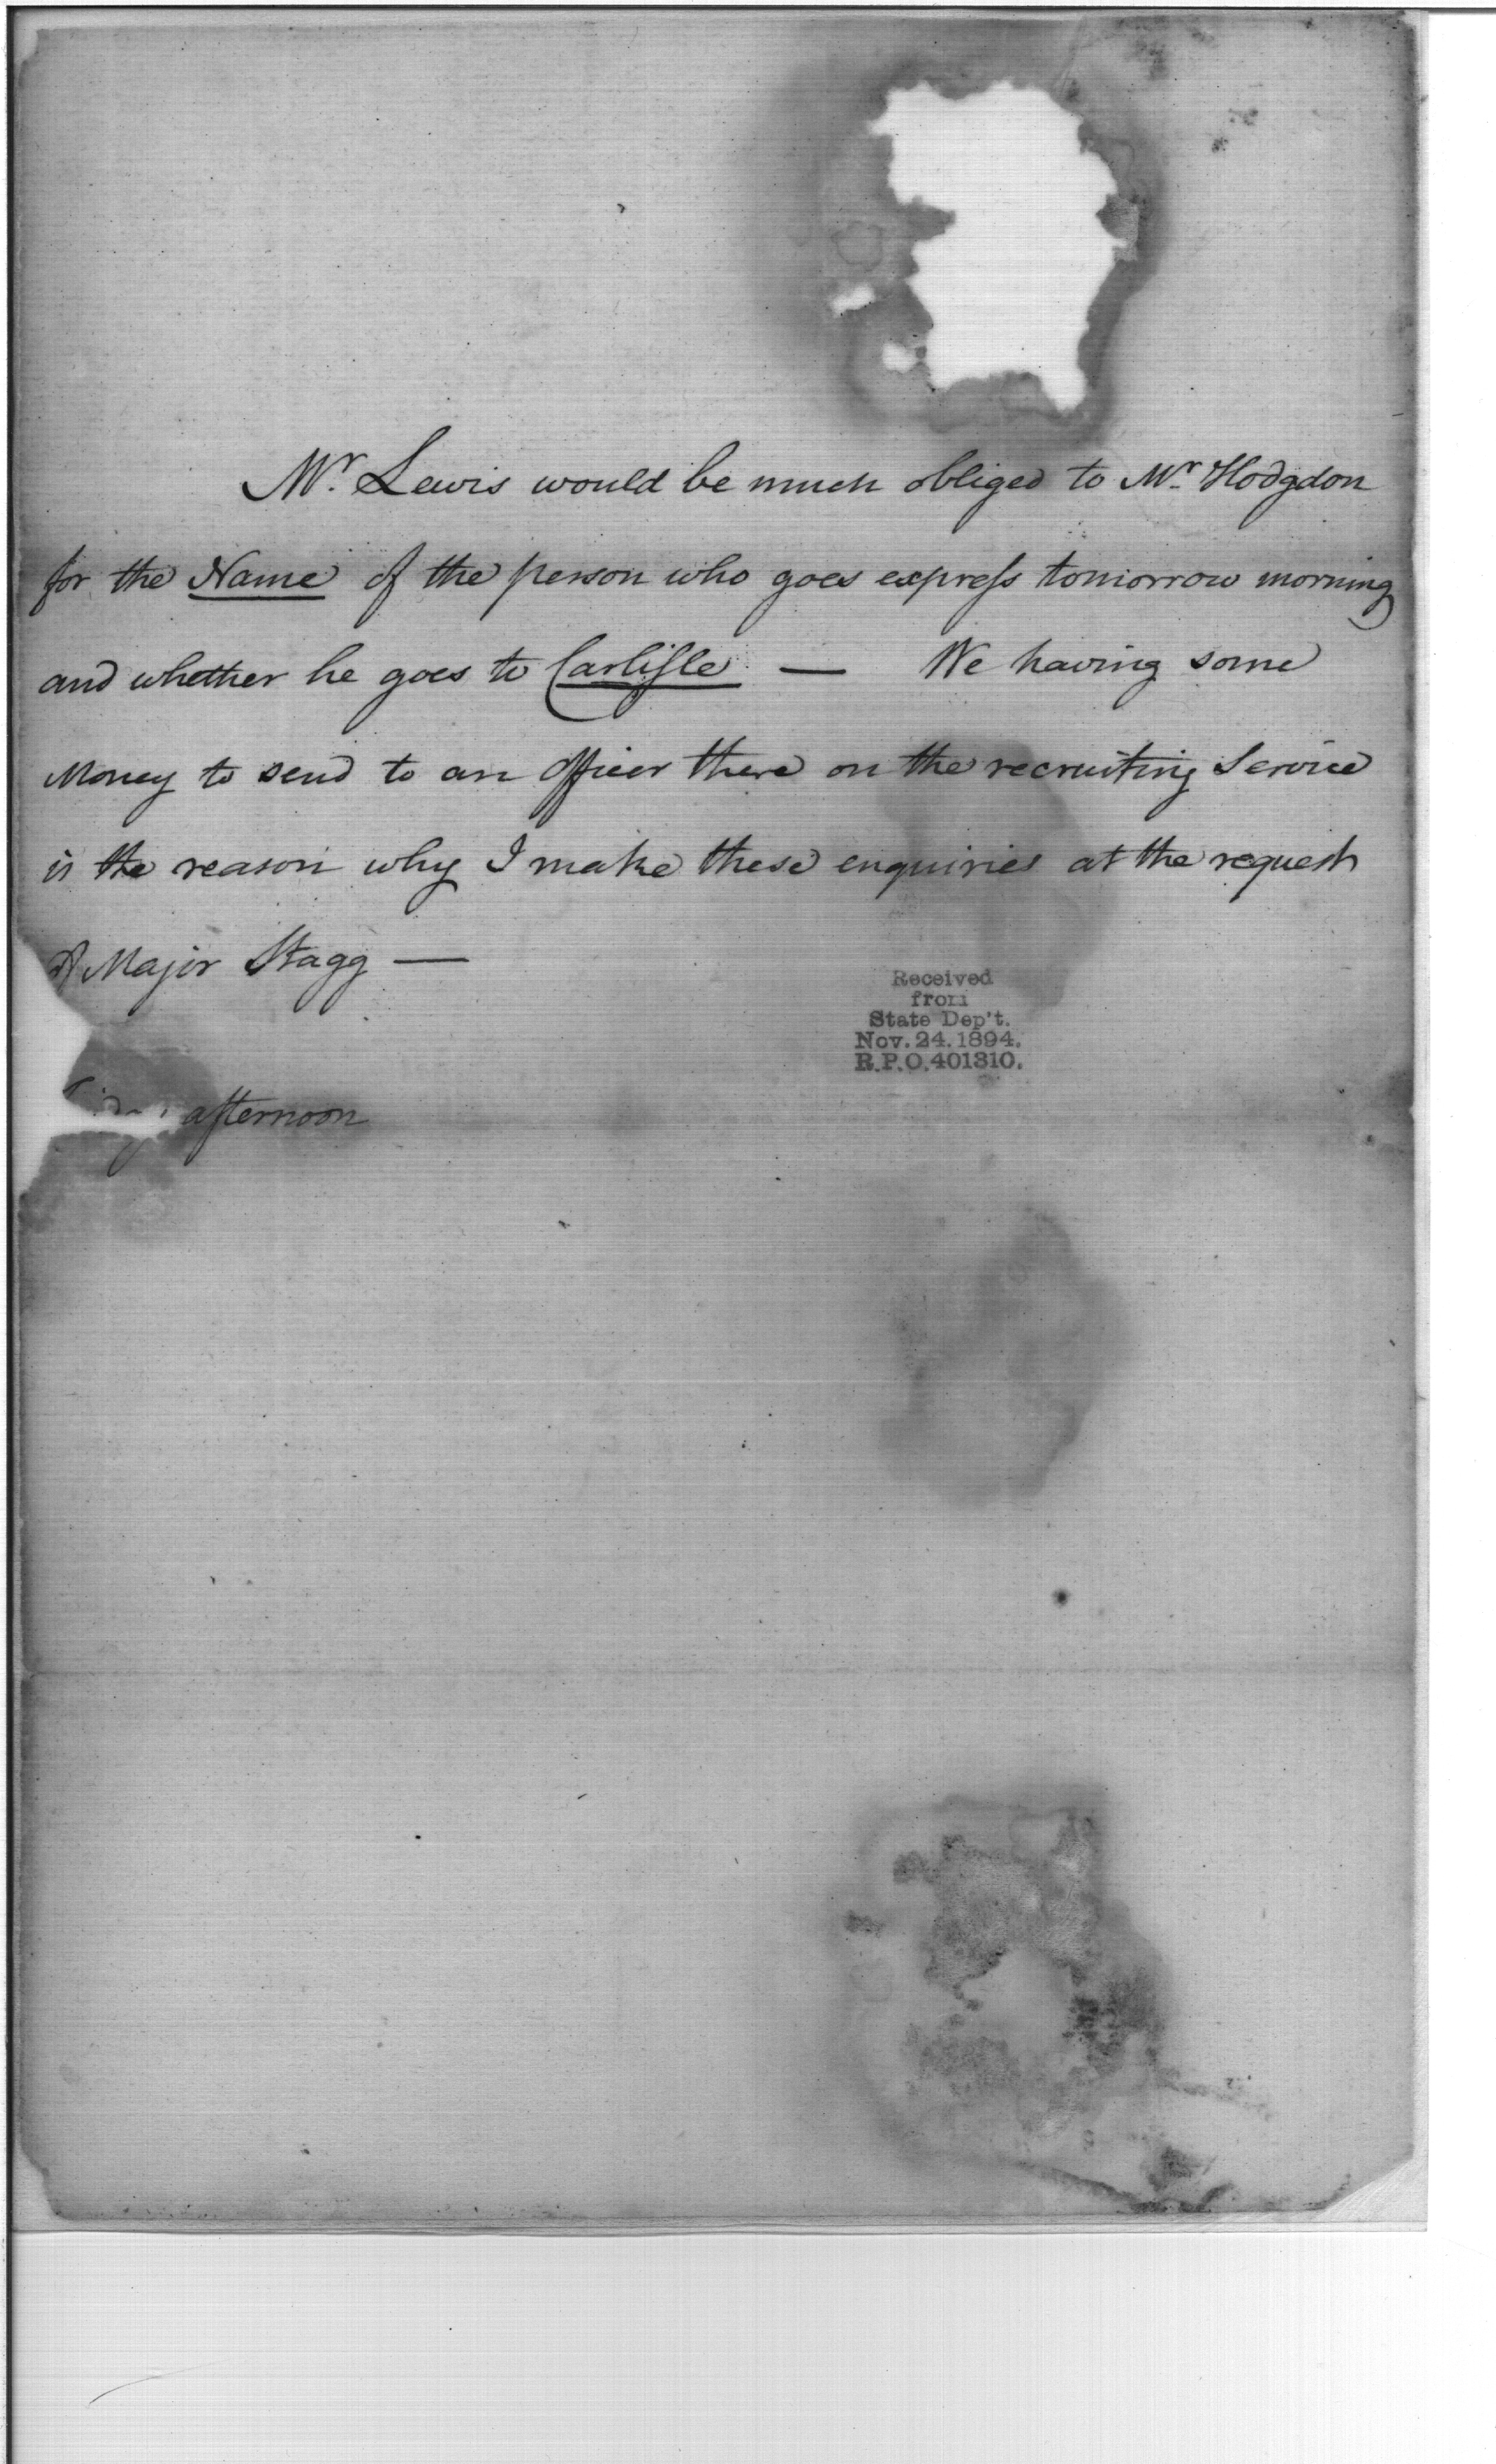 Mr. Lewis would be much obliged to Mr. Hodgdon
for the Name of the person who goes express tomorrow morning
and whether he goes to Carlisle — We having some
Money to send to an Officer there on the recruiting Service
is the reason why I make these enquiries at the request
of Major Stagg —
afternoon
Received
from
State Dep't.
Nov. 24. 1894.
R.P.O. 401310.